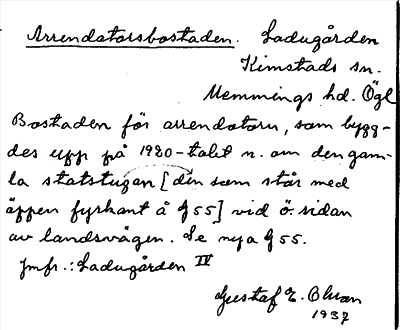 Arrendatorsbostaden. Ladugården
Kimstads sn.
Memmings hd. Ögl
Bostaden för arrendatorn, som bygg-
des upp på 1920-talet n. om den gam-
la statstugan [den som står med
öppen fyrkant å g 55] vid ö. sidan
av landsvägen. Se nya g 55.
Jmfr.: Ladugården IV
Gustaf E. Olson
1937